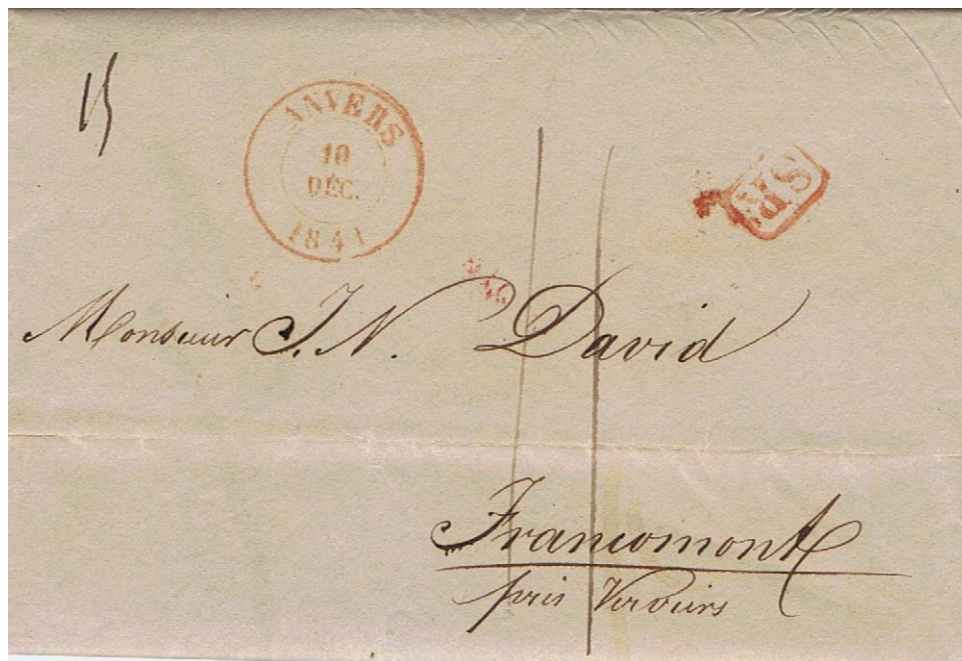 15
ANVERS
10
DÉC.
1841
SR
Monsieur J. N. David
Francomont
près Verviers